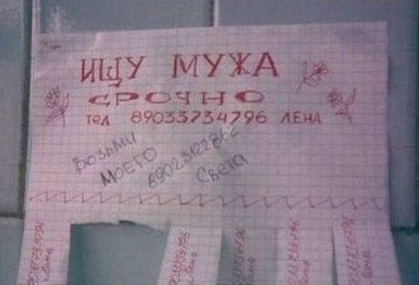 ИЩУ МУЖА
СРОЧНО
тел 89033734796 ЛЕНА
ВОЗЬМИ
МОЕГО
89023122862
Света